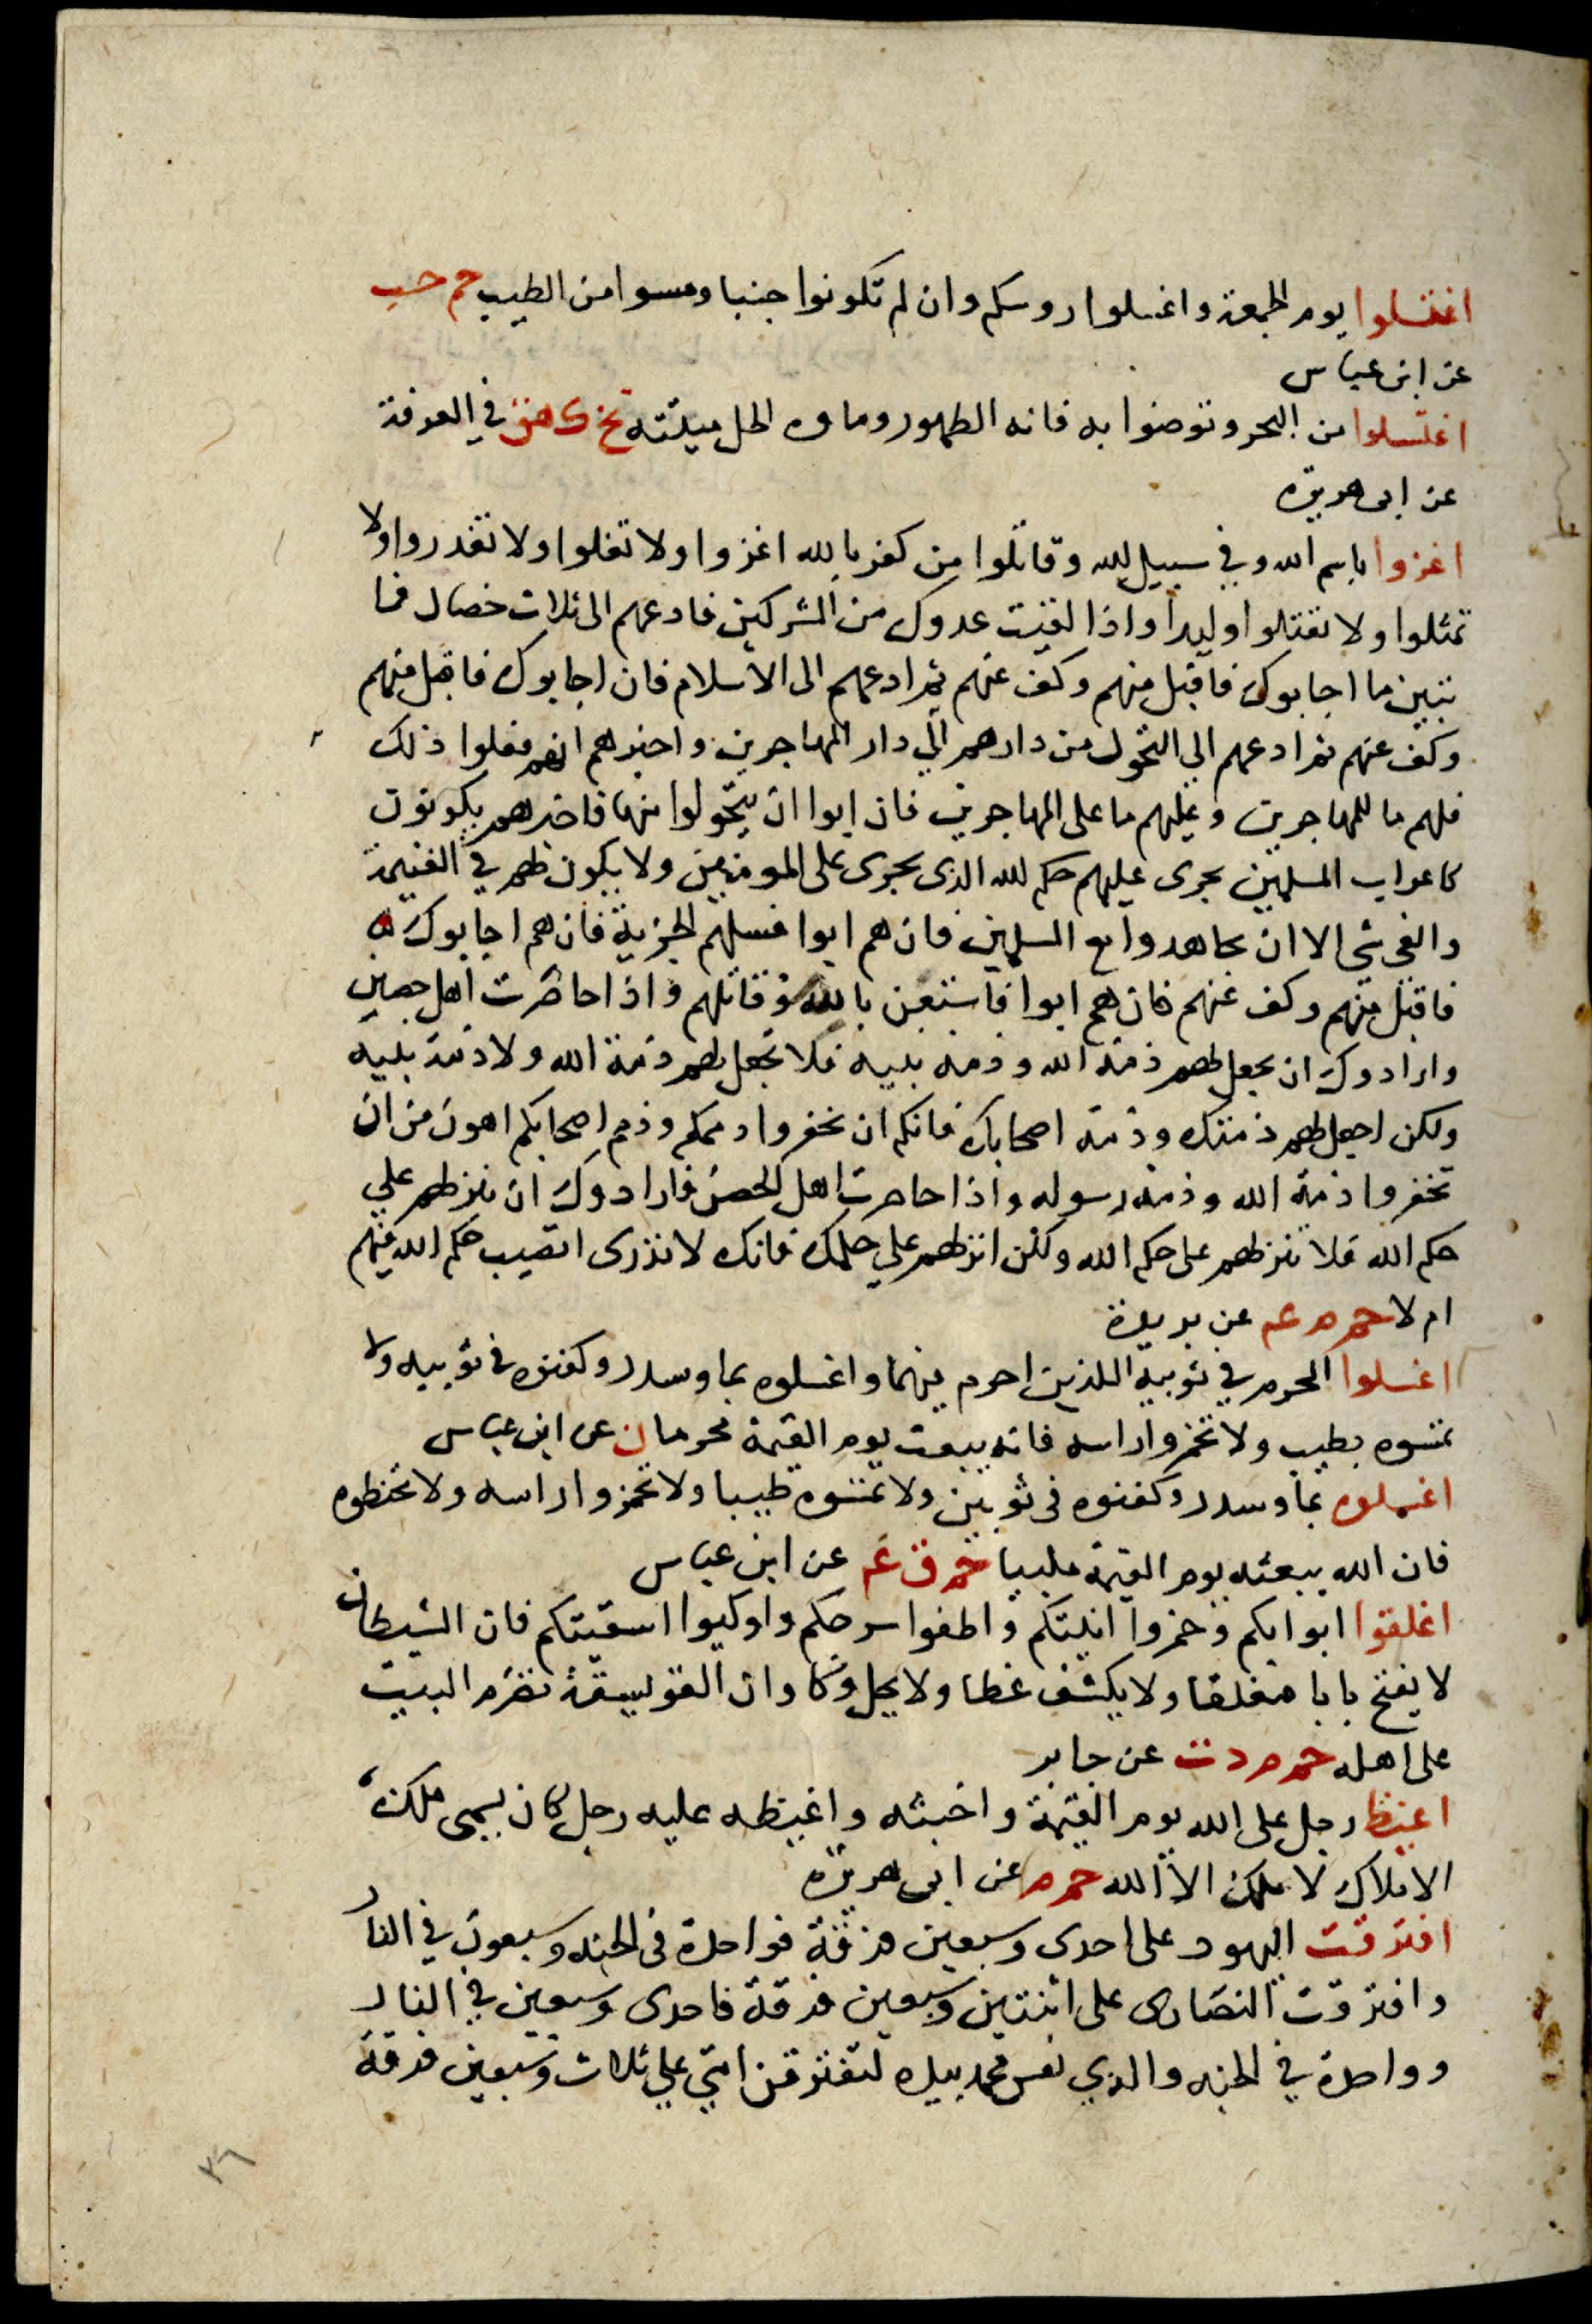 اغتسلوا يوم الجمعة واغسلوا روسكم وان لم تكونوا جنبا ومسوا من الطيب حم حب
عن ابن عباس
اغتسلوا من البحر وتوضوا به فانه الطهور وماوه الحل ميتته تخ ك هق في المعرفة
عن ابى هريرة
اغزوا باسم الله وفي سبيل الله وقاتلوا من كفر بالله اغزوا ولا تغلوا ولا تغدروا ولا
تمثلوا ولا تقتلوا وليدا واذا لقيت عدوك من المشركين فادعهم الى ثلاث خصال فما
بتين ما اجابوك فاقبل منهم وكف عنهم ثم ادعهم الى الاسلام فان اجابوك فاقبل منهم
وكف عنهم ثم ادعهم الي التحول من دارهم الي دار المهاجرين واخبرهم انهم فعلوا ذلك
فلهم ما للمهاجرين وعليهم ما على المهاجرين فان ابوا ان يتحولوا منها فاخبرهم يكونون
كاعراب المسلمين يجرى عليهم حكم الله الذى يجرى على المومنين ولا يكون لهم في الغنيمة
والفى شى الا ان يجاهدوا مع المسلمين فان هم ابوا فسلهم الجزية فان هم اجابوك
فاقبل منهم وكف عنهم فان هم ابوا فاستعن بالله وقاتلهم واذا حاصرت اهل حصن
وارادوك ان تجعل لهم ذمة الله وذمة نبيه فلا تجعل لهم ذمة الله ولا ذمة نبيه
ولكن اجعل لهم ذمتك وذمة اصحابك فانكم ان تخفروا ذممكم وذمم اصحابكم اهون من ان
تخفروا ذمة الله وذمة رسوله واذا حاصرت اهل الحصن فارادوك ان تنزلهم علي
حكم الله فلا تنزلهم على حكم الله ولكن انزلهم علي حكمك فانك لا تدرى اتصيب حكم الله فيهم
ام لا حم م عه عن بريدة
اغسلوا المحرم في ثوبيه اللذين احرم فيهما واغسلوه بماء وسدر وكفنوه في ثوبيه ولا
تمسوه بطيب ولا تخمروا راسه فانه يبعث يوم القيمة محرما ن عن ابن عباس
اغسلوه بماء وسدر وكفنوه فى ثوبين ولا تمسوه طيبا ولا تخمروا راسه ولا تحنطوه
فان الله يبعثه يوم القيمة ملبيا حم ق عه عن ابن عباس
اغلقوا ابوابكم وخمروا انيتكم واطفوا سرجكم واوكيوا اسقيتكم فان الشيطان
لا يفتح بابا مغلقا ولا يكشف غطا ولا يحل وكا وان الفويسقة تضرم البيت
على اهله حم م د ت عن جابر
اغيظ رجل على الله يوم القيمة واخبثه واغيظه عليه رجل كان يسمى ملك
الاملاك لا ملك الا الله حم م عن ابى هريرة
افترقت اليهود على احدى وسبعين فرقة فواحدة فى الجنه وسبعون في النار
وافترقت النصارى على اثنتين وسبعين فرقة فاحدى وسبعين في النار
وواحدة في الجنه والذي نفس محمد بيده لتفترقن امتي علي ثلاث وسبعين فرقة
٣٦